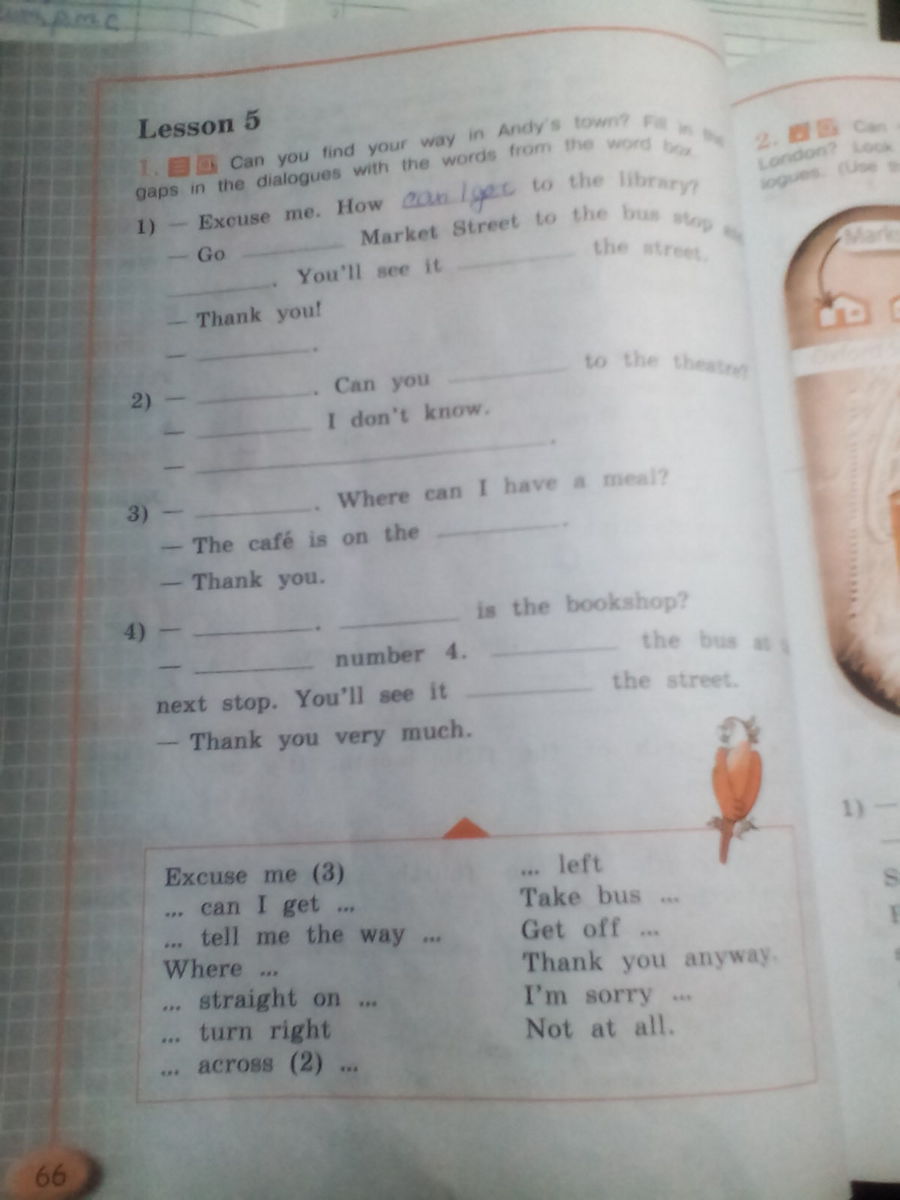 Lesson 5
1. Can you find your way in Andy's town? Fill in the
gaps in the dialogues with the words from the word box.
1) — Excuse me. How can I get to the library?
— Go ________ Market Street to the bus stop
________. You'll see it ________ the street.
— Thank you!
— ________.
2) — ________. Can you ________ to the theatre?
— ________ I don't know.
— ________.
3) — ________. Where can I have a meal?
— The café is on the ________.
— Thank you.
4) — ________. ________ is the bookshop?
— ________ number 4. ________ the bus at
next stop. You'll see it ________ the street.
— Thank you very much.
Excuse me (3)
... can I get ...
... tell me the way ...
Where ...
... straight on ...
... turn right
... across (2) ...
... left
Take bus ...
Get off ...
Thank you anyway.
I'm sorry ...
Not at all.
66
2. Can
London? Look
logues. (Use
Mark
1) —